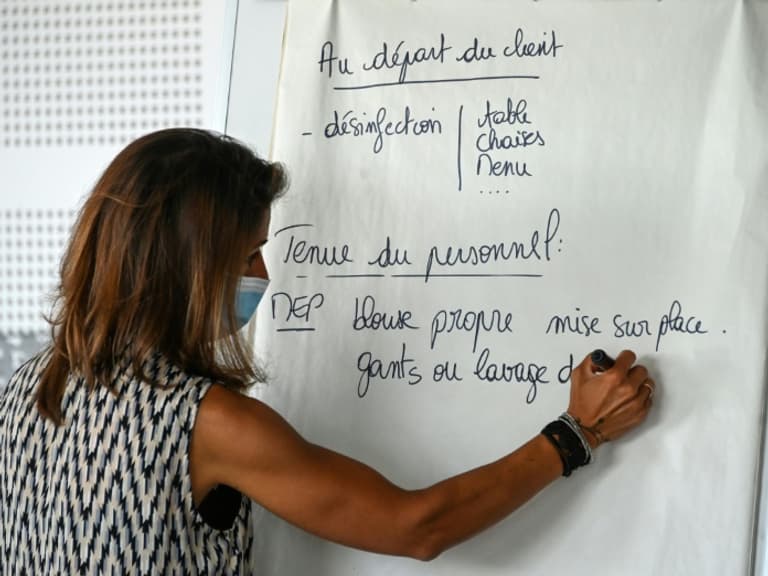 Au départ du client
- désinfection | table
chaises
Menu
....
Tenue du personnel :
DEP blouse propre mise sur place .
gants ou lavage d